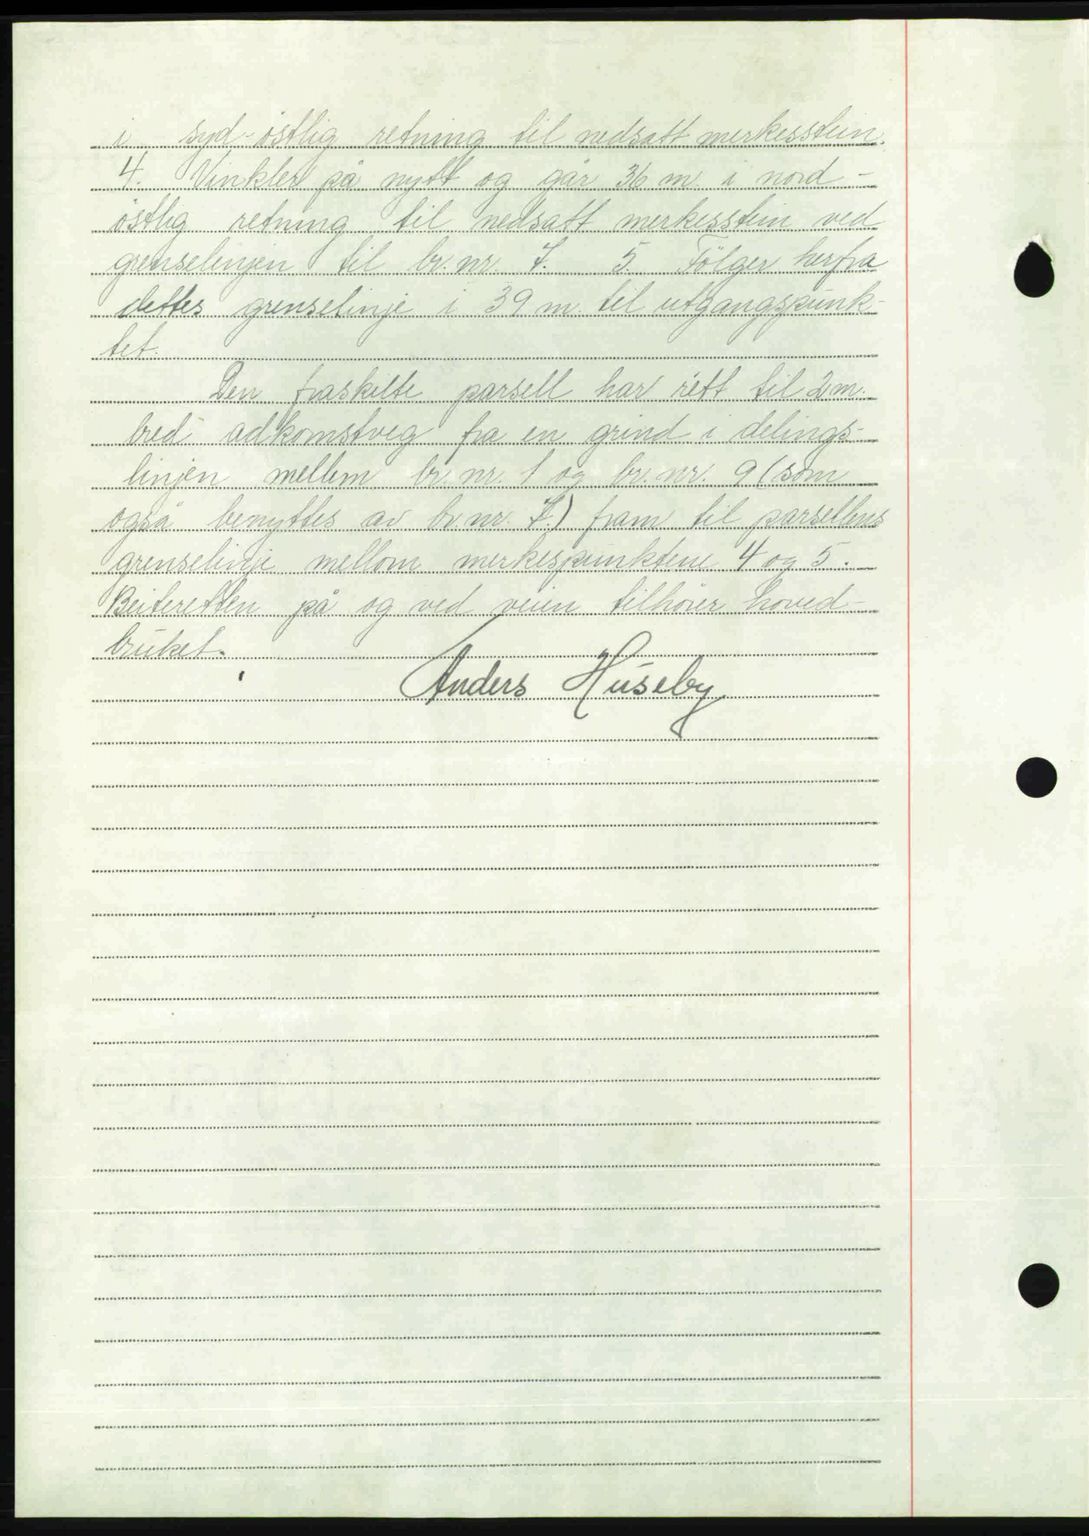 i syd-östlig retning til nedsatt merkesstein
4. Vinkler på nytt og går 36 m. i nord-
östlig retning til nedsatt merkesstein ved
grenselinjen til br. nr. 7. 5. Fölger herfra
dettes grenselinje i 39 m. til utgangspunk-
tet.
Den fraskilte parsell har rett til 2 m.
bred adkomstveg fra en grind i delings-
linjen mellem br. nr. 1 og br. nr. 9 (som
også benyttes av br. nr. 7.) fram til parsellens
grenselinje mellom merkespunktene 4 og 5.
Beiteretten på og ved veien tilhöier hoved-
bruket.
Anders Huseby